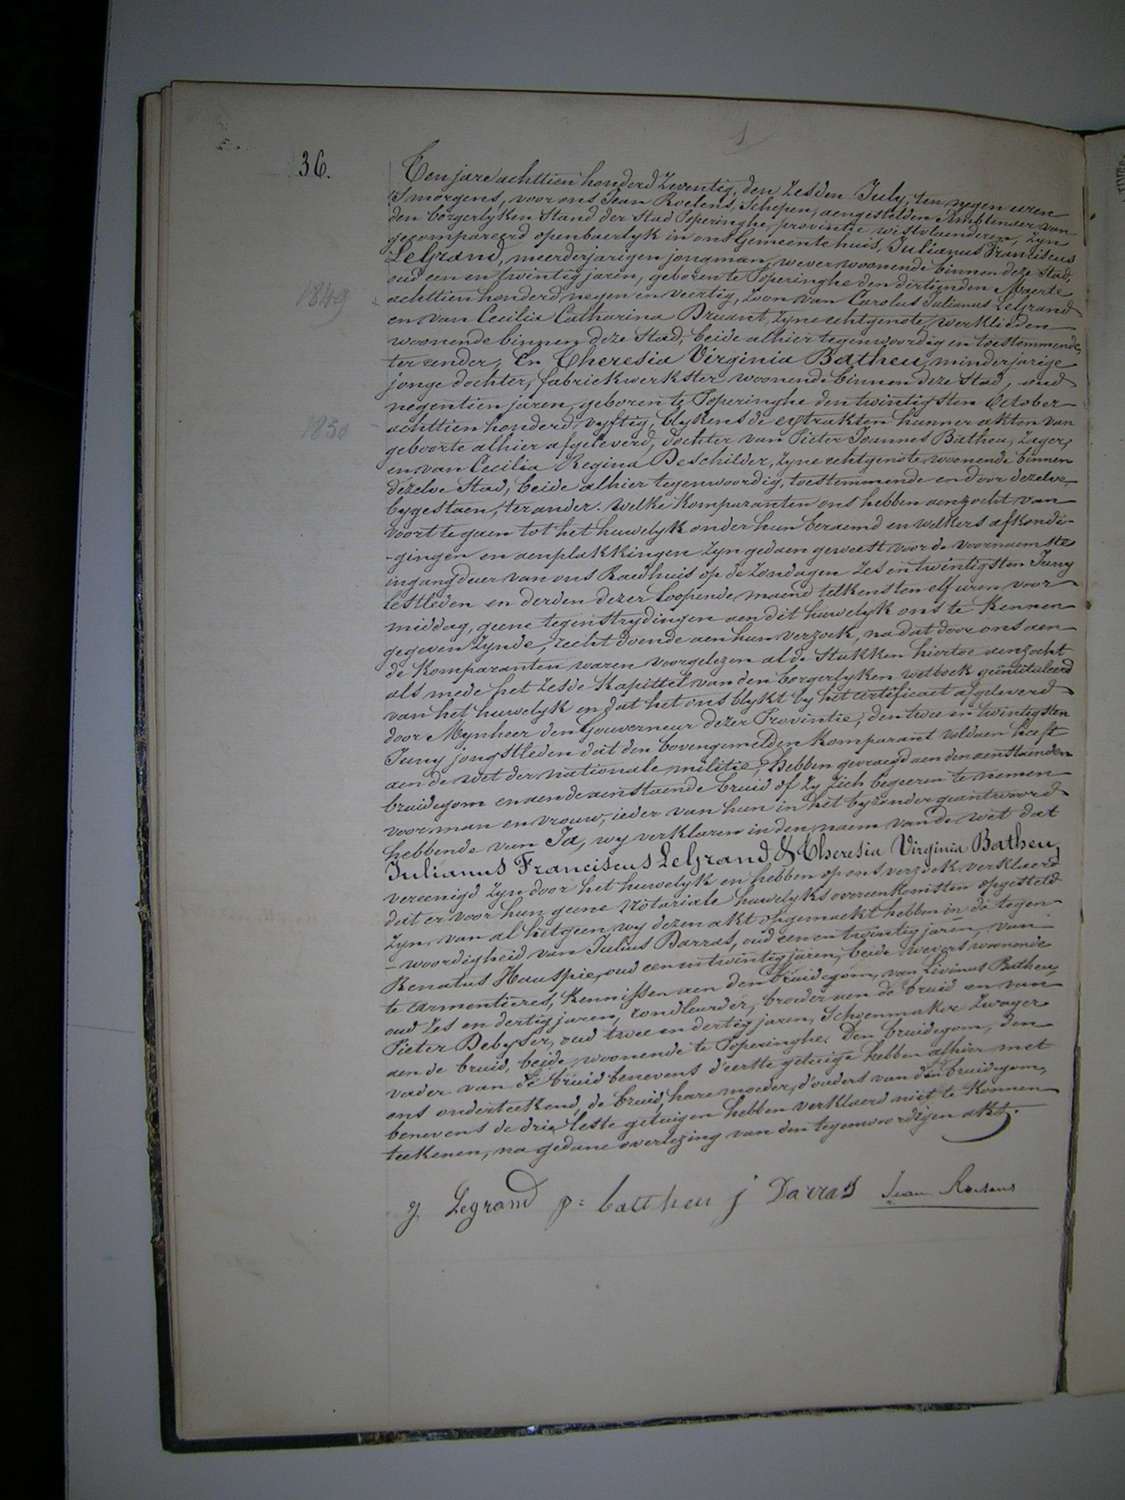 36.
Ten jare achttien honderd Zeventig, den Zesden July, ten negen uren
's morgens, voor ons Jean Roelens Schepen, aengestelden Ambtenaer van
den borgerlyken Stand der Stad Poperinghe, provintie westvlaenderen, Zyn
gecompareerd openbaerlyk in ons Gemeentehuis, Julianus Franciscus
LeGrand, meerderjarigen jongman, wever woonende binnen deze Stad,
oud een en twintig jaren, geboren te Poperinghe den dertienden Maerte
1849
achttien honderd negen en veertig, Zoon van Carolus Julianus LeGrand
en van Cecilia Catharina Bruant, Zyne echtgenote, werklieden
woonende binnen deze Stad, beide alhier tegenwoordig en toestemmende,
ter eender, En Theresia Virginia Batheu, minderjarige
jonge dochter, fabriekwerkster woonende binnen deze Stad, oud
negentien jaren, geboren te Poperinghe den twintigsten October
1850
achttien honderd vyftig, blykens de extrakten hunner akten van
geboorte alhier afgeleverd, dochter van Pieter Joannes Batheu, Zager,
en van Cecilia Regina DeSchilder, Zyne echtgenote woonende binnen
dezelve Stad, beide alhier tegenwoordig, toestemmende en door dezelve
bygestaen, ter ander. Welke Komparanten ons hebben aenzocht van
voort te gaen tot het huwelyk onder hun beraemd en welkers afkondi-
-gingen en aenplakkingen Zyn gedaen geweest voor de voornaemste
ingangdeur van ons Raedhuis op de Zondagen Zes en twintigsten Juny
lestleden en derden dezer loopende maend telkens ten elf uren voor
middag, geene tegenstrydingen aen dit huwelyk ons te Kennen
gegeven Zynde, recht doende aen hun verzoek, na dat door ons aen
de Komparanten waren voorgelezen al de Stukken hiertoe aenzocht
als mede het Zesde Kapittel van den borgerlyken wetboek geintituleerd
van het huwelyk en dat het ons blykt by het certificaet afgeleverd
door Mynheer den Gouverneur dezer Provintie, den twee en twintigsten
Juny jongstleden dat den bovengemelden Komparant voldaen heeft
aen de wet der nationale militie, Hebben gevraegd aen den aenstaenden
bruidegom en aen de aenstaende bruid of Zy Zich begeeren te nemen
voor man en vrouw, ieder van hun in het byzonder geantwoord
hebbende van Ja, wy verklaren in den naem van de wet dat
Julianus Franciscus LeGrand & Theresia Virginia Batheu,
vereenigd Zyn door het huwelyk en hebben op ons verzoek verklaerd
dat er voor hun geene Notariale huwelyks overeenkomsten opgesteld
Zyn van al hetgeen wy dezen akt opgemaekt hebben in de tegen-
-woordigheid van Julius Darras, oud een en twintig jaren, van
Renatus Hauspie, oud een en twintig jaren, beide wevers woonende
te Armentieres, Kennissen aen den bruidegom, van Livinus Batheu,
oud Zes en dertig jaren, rondleurder, broeder aen de bruid en van
Pieter Debyser, oud twee en dertig jaren, Schoenmaker Zwager
aen de bruid, beide woonende te Poperinghe. Den bruidegom, den
vader van de bruid benevens d'eerste getuige hebben alhier met
ons onderteekend, de bruid, hare moeder, d'ouders van den bruidegom,
benevens de drie leste getuigen hebben verklaerd niet te Konnen
teekenen, na gedane overlezing van den tegenwoordigen akt.
g Legrand p: battheu j Darras Jean Roelens